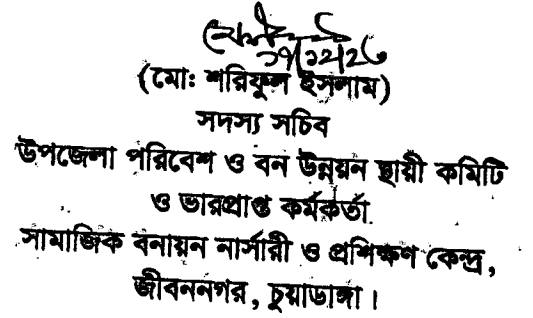 ১৭/১২/২৩
(মোঃ শরিফুল ইসলাম)
সদস্য সচিব
উপজেলা পরিবেশ ও বন উন্নয়ন স্থায়ী কমিটি
ও ভারপ্রাপ্ত কর্মকর্তা
সামাজিক বনায়ন নার্সারী ও প্রশিক্ষণ কেন্দ্র,
জীবননগর, চুয়াডাঙ্গা।